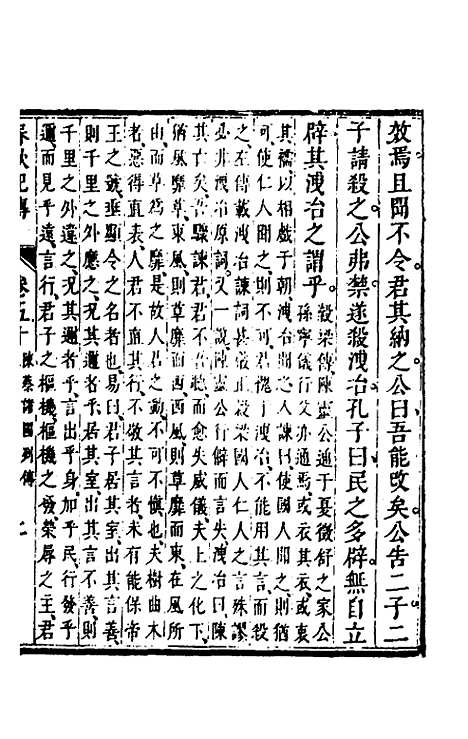 效焉且聞不令君其納之公曰吾能改矣公告二子二
子請殺之公弗禁遂殺洩冶孔子曰民之多辟無自立
辟其洩冶之謂乎
穀梁傳陳靈公通于夏徵舒之家公
孫寧儀行父亦通焉或衣其衣或衷
其襦以相戲于朝洩冶聞之入諫曰使國人聞之則猶
可使仁人聞之則不可君愧于洩冶不能用其言而殺
之左傳載洩冶諫詞甚嚴正穀梁國人仁人之言殊謬
必非洩冶原詞又一說陳靈公行僻而言失洩冶曰陳
其亡矣吾驟諫君君不吾聽而愈失威儀夫上之化下
猶風靡草東風則草靡而西西風則草靡而東在風所
由而草為之靡是故人君之動不可不慎也夫樹曲木
者惡得直影人君不直其行不敬其言者未有能保帝
王之號垂顯令之名者也易曰君子居其室出其言善
則千里之外應之況其邇者乎居其室出其言不善則
千里之外違之況其邇者乎言出乎身加乎民行發乎
邇而見乎遠言行君子之樞機樞機之發榮辱之主君
春秋紀傳 卷五十 陳蔡諸國列傳